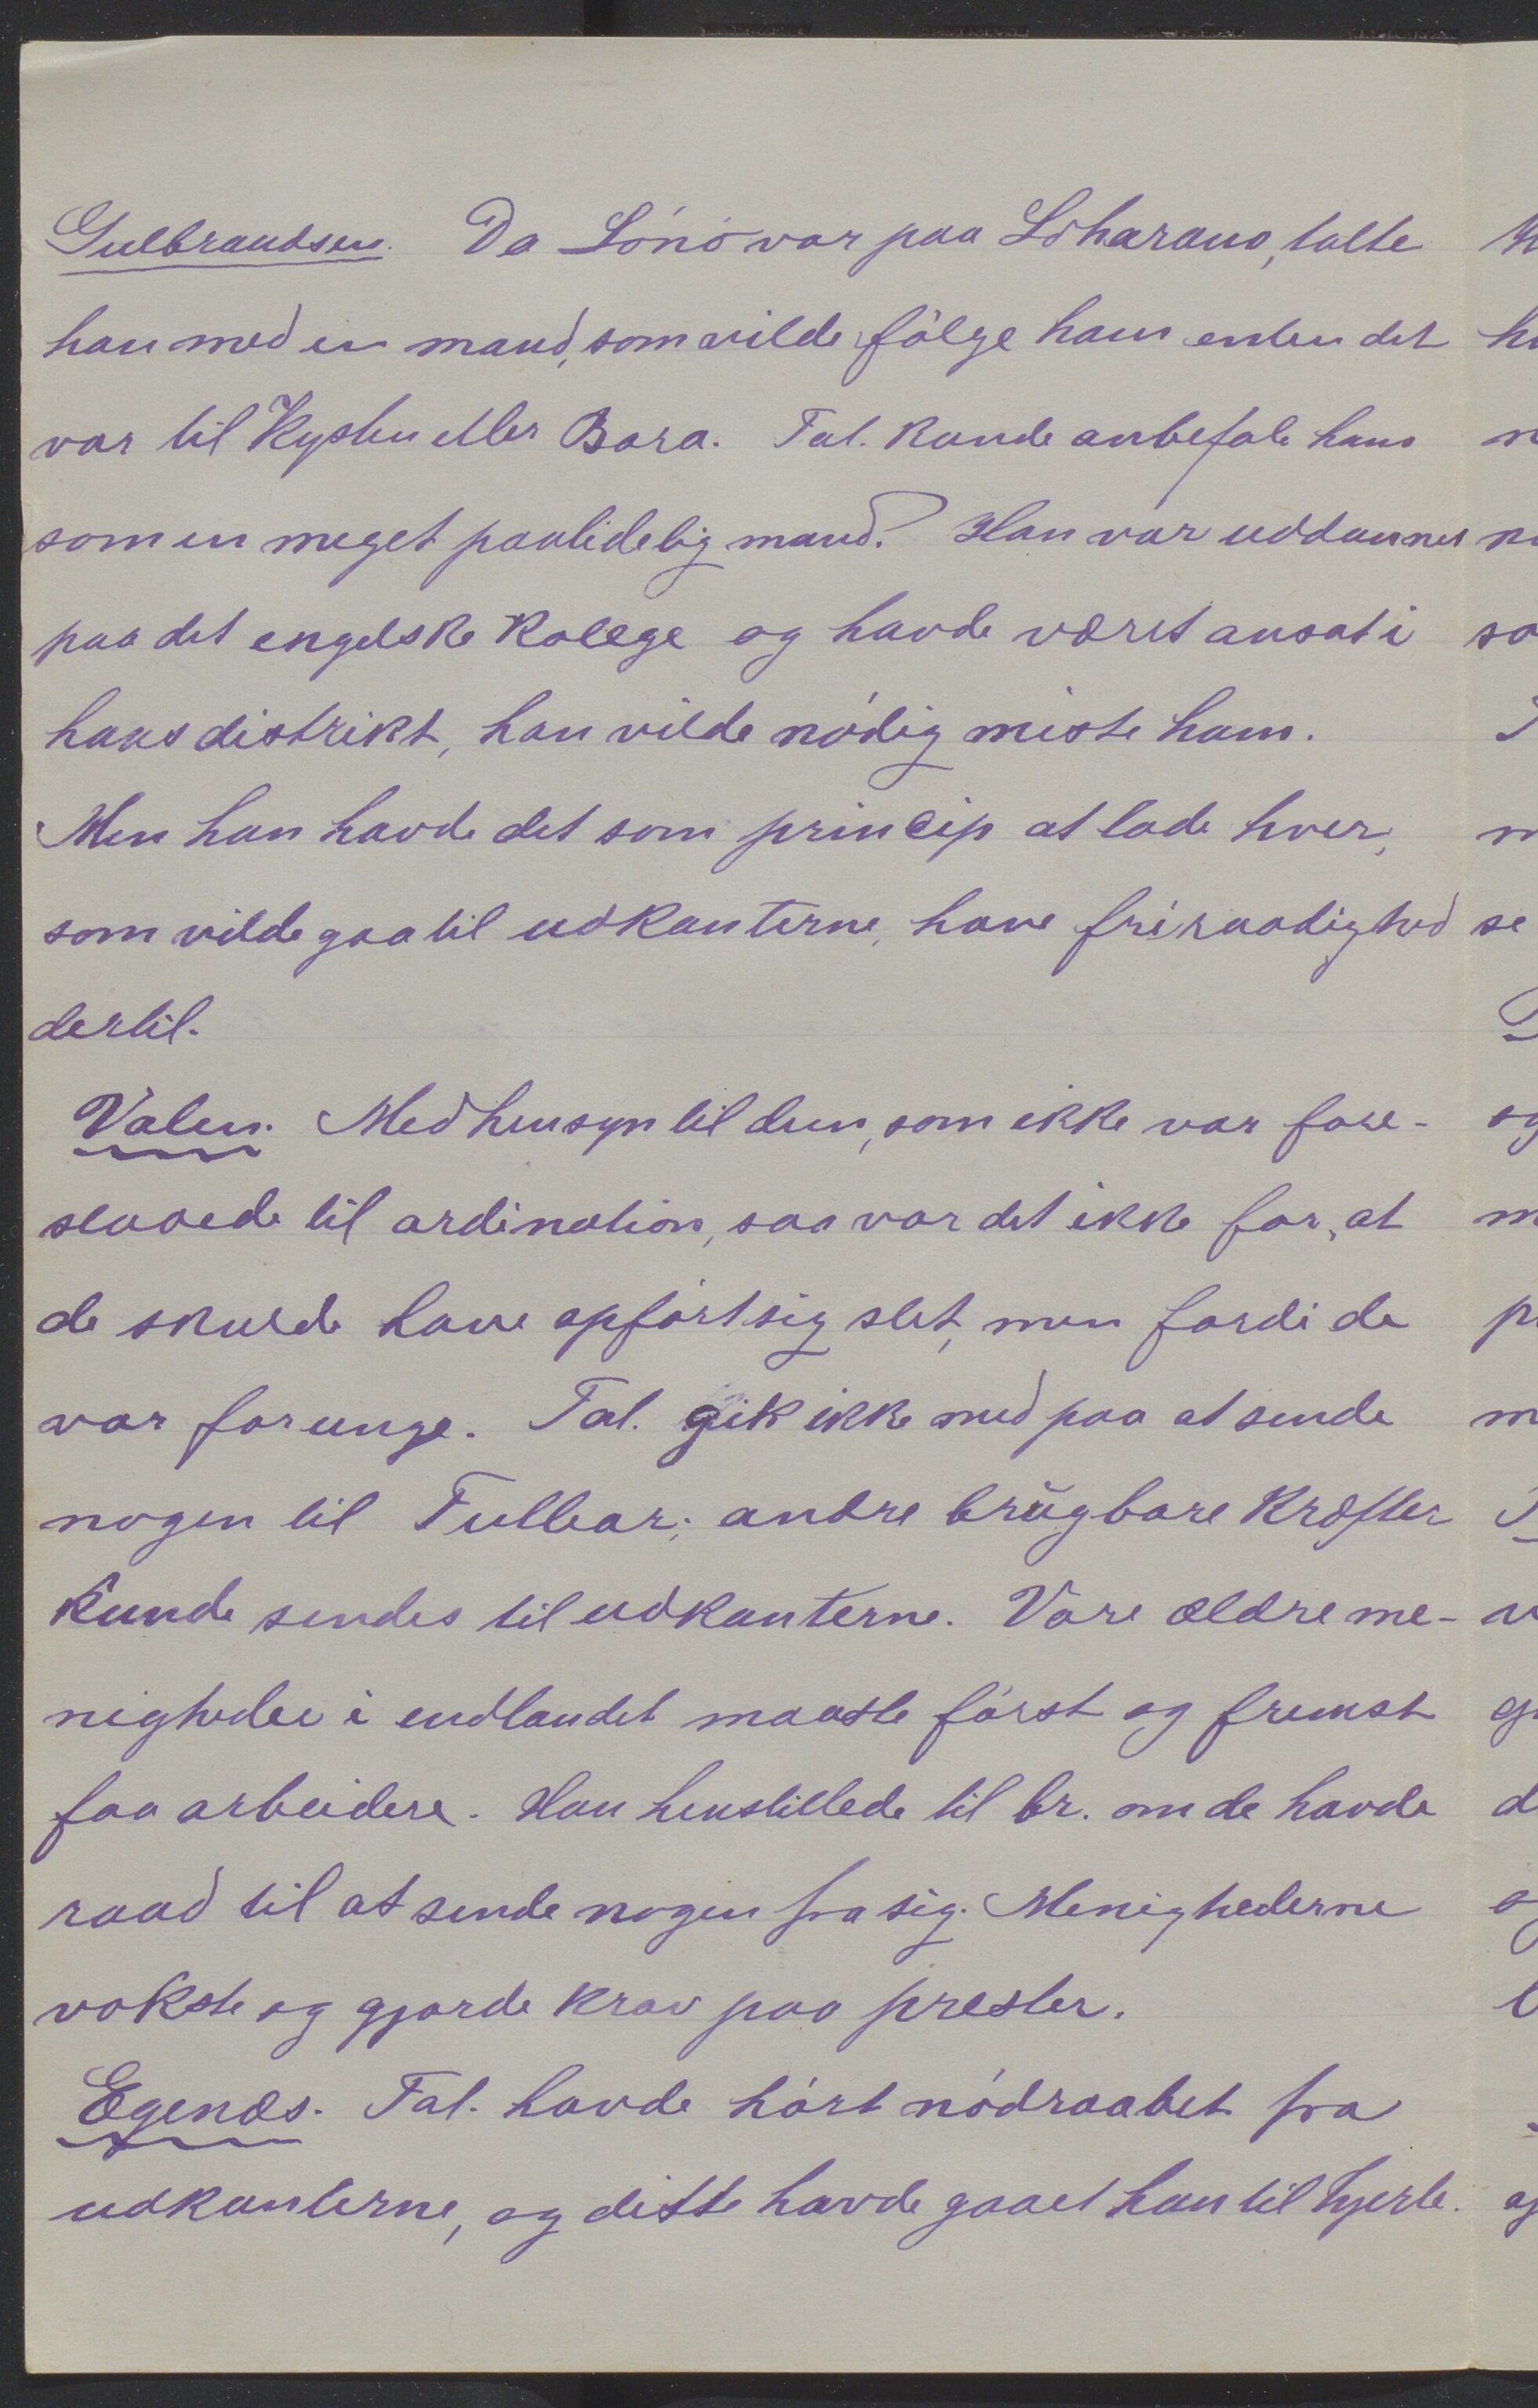 Gulbrandsen. Da Lönö var paa Loharano, talte
han med en mand, som vilde fölge ham enten det
var til Kysten eller Bara. Tal. kunde anbefale ham
som en meget paalidelig mand. Han var uddannet
paa det engelske kolege og havde været ansat i
hans distrikt, han vilde nödig miste ham.
Men han havde det som princip at lade hver,
som vilde gaa til udkanterne, have fri raadighed
dertil.
Valen. Med hensyn til dem, som ikke var fore-
slaaede til ordination, saa var det ikke for, at
de skulde have opfört sig slet, men fordi de
var for unge. Tal. gik ikke med paa at sende
nogen til Tullear; andre brugbare kræfter
kunde sendes til udkanterne. Vore ældre me-
nigheder i indlandet maatte först og fremst
faa arbeidere. Han henstillede til br. om de havde
raad til at sende nogen fra sig. Menighederne
vokste og gjorde krav paa prester.
Egenæs. Tal. havde hört nödraabet fra
udkanterne, og dette havde gaaet ham til hjerte.